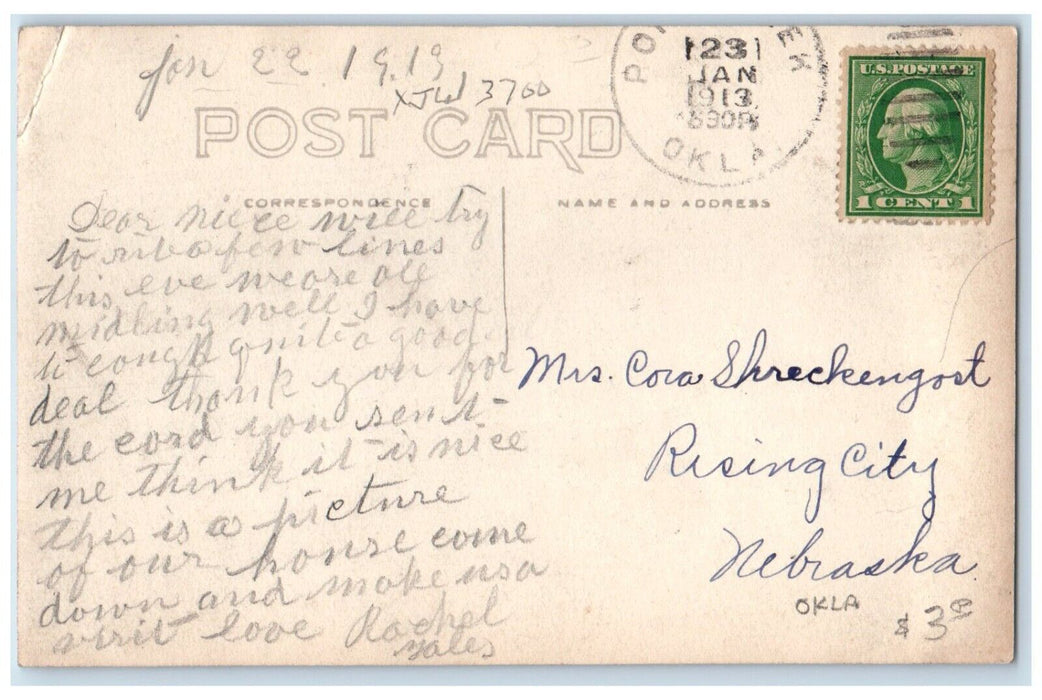 Jan 22 1913
3700
POST CARD
23
JAN
1913
630P
OKLA
U.S. POSTAGE
1 CENT 1
CORRESPONDENCE
NAME AND ADDRESS
Dear niece will try
to rite a few lines
this eve we are all
midling well I have
to cough quite a good
deal thank you for
the card you sent
me think it is nice
this is a picture
of our house come
down and make us a
visit love Rachel
Yales
Mrs. Cora Shreckengost
Rising City
Nebraska
OKLA
$ 3.00